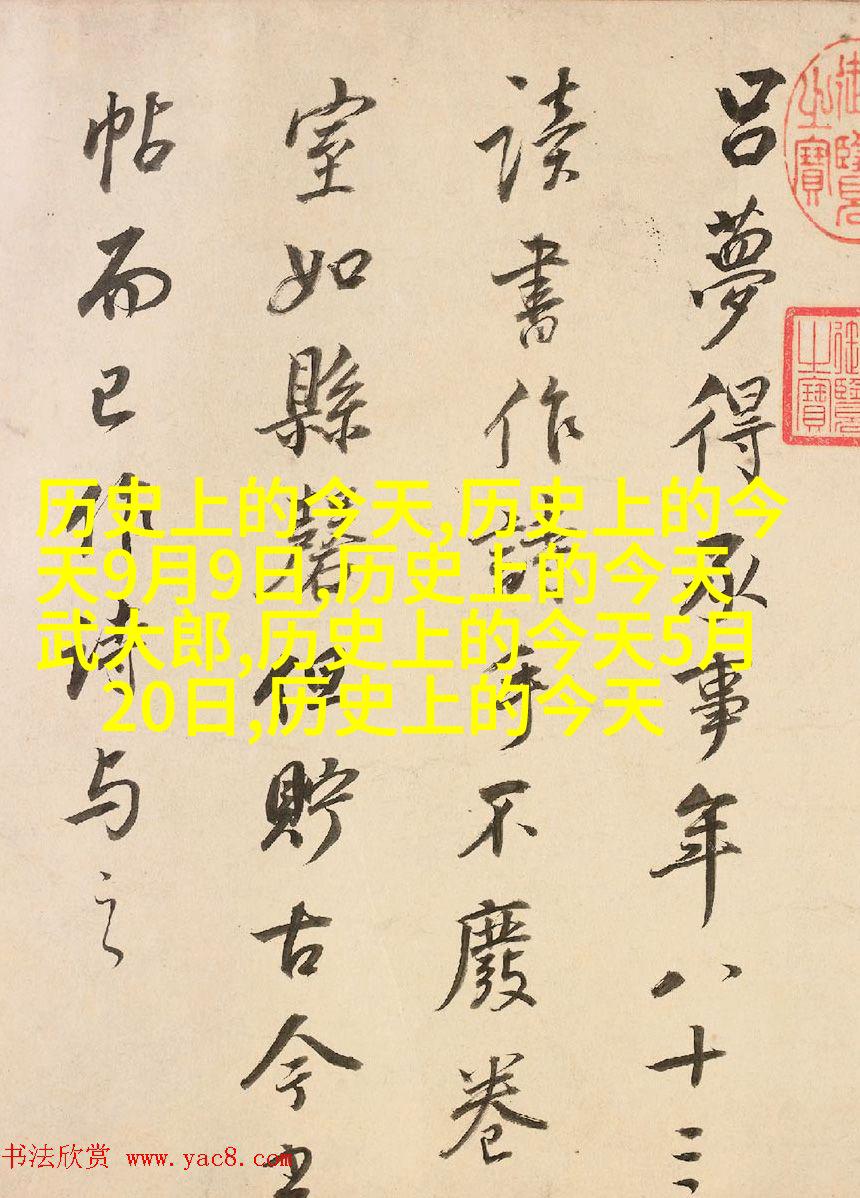 吕夢得承事年八十三
读書作詩手不廢卷
室如縣磬貯古今
帖而已作诗与之
历史上的今天,历史上的今
天9月9日,历史上的今天
武大郎,历史上的今天5月
20日,历史上的今天
御覽之寶
御覽之寶
书法欣赏 www.yac8.com